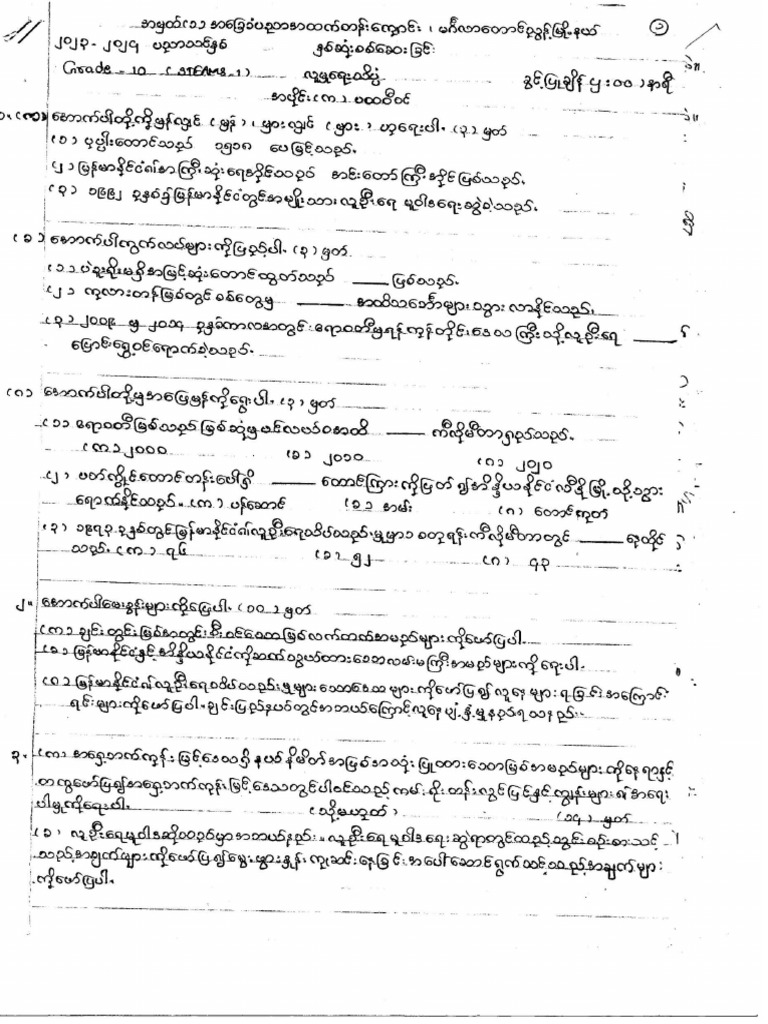 အမှတ်(၁) အခြေခံပညာအထက်တန်းကျောင်း ၊ မင်္ဂလာတောင်ညွန့်မြို့နယ် ၁
၂၀၂၃ - ၂၀၂၄ ပညာသင်နှစ် နှစ်ဆုံးစစ်ဆေးခြင်း
Grade - 10 ( STEAMS - 1 ) လူမှုရေးသိပ္ပံ ခွင့်ပြုချိန် ၂း၀၀ နာရီ
အပိုင်း (က) ပထဝီဝင်
၁. (က) အောက်ပါတို့ကိုမှန်လျှင် (မှန်) ၊ မှားလျှင် (မှား) ဟုရေးပါ. (၃) မှတ်
(၁) ပုပ္ပါးတောင်သည် ၁၅၁၈ ပေမြင့်သည်.
(၂) မြန်မာနိုင်ငံ၏အကြီးဆုံးရေအိုင်သည် အင်းတော်ကြီးအိုင်ဖြစ်သည်.
(၃) ၁၉၉၂ ခုနှစ်၌မြန်မာနိုင်ငံတွင်အမျိုးသားလူဦးရေ မူဝါဒရေးဆွဲခဲ့သည်.
(ခ) အောက်ပါကွက်လပ်များကိုဖြည့်ပါ. (၃) မှတ်
(၁) ပဲခူးရိုးမရှိအမြင့်ဆုံးတောင်ထွတ်သည် ____ ဖြစ်သည်.
(၂) ကုလားတန်မြစ်တွင် စစ်တွေမှ ____ အထိသင်္ဘောများသွားလာနိုင်သည်.
(၃) ၂၀၀၉ မှ ၂၀၁၄ ခုနှစ်ကာလအတွင်း ဧရာဝတီမှရန်ကုန်တိုင်းဒေသကြီးသို့လူဦးရေ ____
ပြောင်းရွှေ့ဝင်ရောက်ခဲ့သည်.
(ဂ) အောက်ပါတို့မှအဖြေမှန်ကိုရွေးပါ. (၃) မှတ်
(၁) ဧရာဝတီမြစ်သည် မြစ်ဆုံမှပင်လယ်ဝအထိ ____ ကီလိုမီတာရှည်သည်.
(က) ၂၀၀၀ (ခ) ၂၀၁၀ (ဂ) ၂၀၂၀
(၂) ပတ်ကွိုင်တောင်တန်းပေါ်ရှိ ____ တောင်ကြားကိုဖြတ်၍အိန္ဒိယနိုင်ငံလီဒိုမြို့သို့သွား
ရောက်နိုင်သည်. (က) ပန်ဆောင် (ခ) အမ်း (ဂ) တောင်ကုတ်
(၃) ၁၉၇၃ ခုနှစ်တွင်မြန်မာနိုင်ငံ၏လူဦးရေသိပ်သည်းမှုမှာ ၁ စတုရန်းကီလိုမီတာတွင် ____ ရှိ
သည်. (က) ၇၆ (ခ) ၅၂ (ဂ) ၄၃
၂။ အောက်ပါမေးခွန်းများကိုဖြေပါ. (၁၀) မှတ်
(က) ချင်းတွင်းမြစ်အတွင်းစီးဝင်သောမြစ်လက်တက်အမည်များကိုဖော်ပြပါ.
(ခ) မြန်မာနိုင်ငံနှင့်အိန္ဒိယနိုင်ငံကိုဆက်သွယ်ထားသောလမ်းမကြီးအမည်များကိုရေးပါ.
(ဂ) မြန်မာနိုင်ငံ၏လူဦးရေသိပ်သည်းမှုများသောဒေသများကိုဖော်ပြ၍လူနေများရခြင်းအကြောင်း
ရင်းများကိုဖော်ပြပါ. ချင်းပြည်နယ်တွင်အဘယ်ကြောင့်လူနေပျံ့နှံ့မှုနည်းရသနည်း.
၃. (က) အရှေ့ဘက်ကုန်းမြင့်ဒေသရှိ နယ်နိမိတ်အဖြစ်အသုံးပြုထားသောမြစ်အမည်များကိုနေရာနှင့်
တကွဖော်ပြ၍အရှေ့ဘက်ကုန်းမြင့်ဒေသတွင်ပါဝင်သည့်ကမ်းရိုးတန်းလွင်ပြင်နှင့်ကျွန်းများ၏အရေး
ပါမှုကိုရေးပါ. (သို့မဟုတ်) (၁၄) မှတ်
(ခ) လူဦးရေမူဝါဒဆိုသည်မှာအဘယ်နည်း။ လူဦးရေမူဝါဒရေးဆွဲရာတွင်ထည့်သွင်းစဉ်းစားသင့်
သည့်အချက်များကိုဖော်ပြ၍မွေးဖွားနှုန်းကျဆင်းနေခြင်းအပေါ်ဆောင်ရွက်သင့်သည့်အချက်များ
ကိုဖော်ပြပါ.